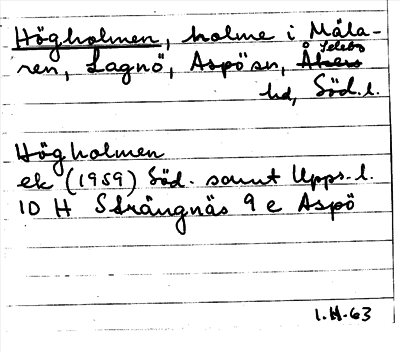 Högholmen, holme i Mäla-
ren, Lagnö, Aspö sn, Åkers Selebo
hd, Söd.l.
Högholmen
ek (1959) Söd. samt Upps.l.
10 H Strängnäs 9 e Aspö
1.H.63